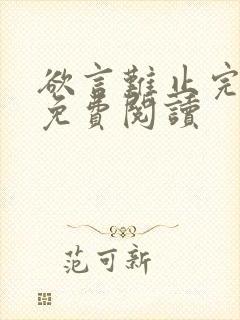 欲言難止完
免費閱讀
范可新